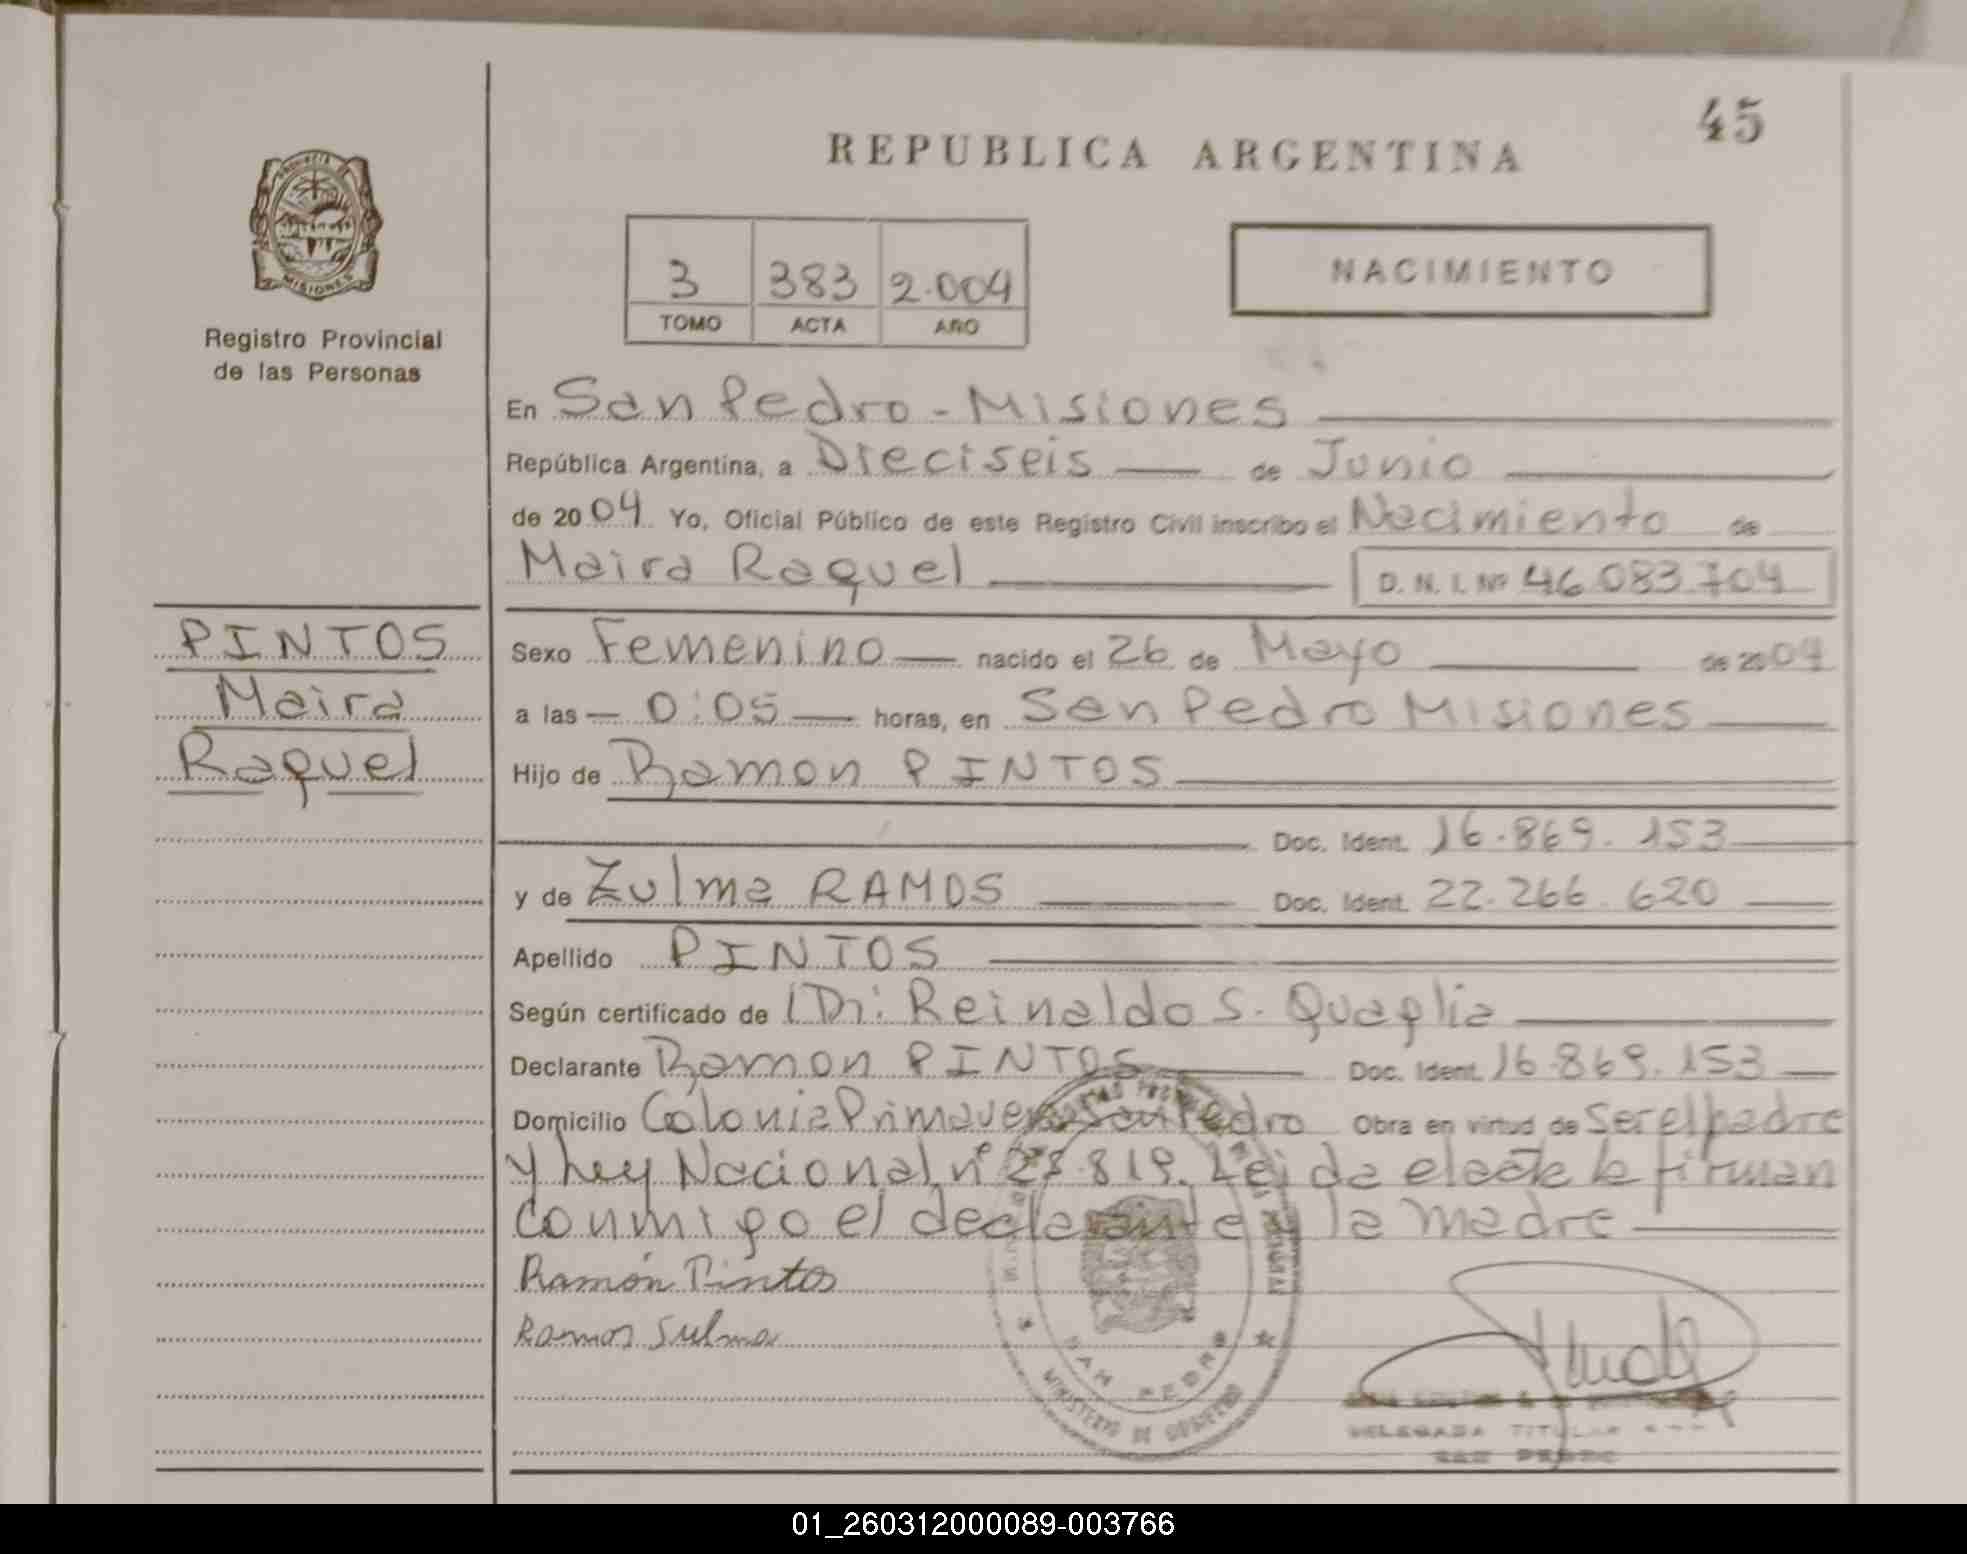 45
REPUBLICA ARGENTINA
3 383 2.004
TOMO ACTA AÑO
NACIMIENTO
MISIONES
Registro Provincial
de las Personas
En San Pedro - Misiones
República Argentina, a Dieciseis de Junio
de 2004 Yo, Oficial Público de este Registro Civil inscribo el Nacimiento de
Maira Raquel D.N.I. Nº 46.083.704
PINTOS
Maira
Raquel
Sexo Femenino nacido el 26 de Mayo de 2004
a las 0:05 horas, en San Pedro Misiones
Hijo de Ramon PINTOS
Doc. Ident. 16.869.153
y de Zulma RAMOS Doc. Ident. 22.266.620
Apellido PINTOS
Según certificado de Dr: Reinaldo S. Quaglia
Declarante Ramon PINTOS Doc. Ident. 16.869.153
Domicilio Colonia Primavera San Pedro Obra en virtud de Ser el padre
y ley Nacional nº 23.819. Leida el acta la firman
conmigo el declarante la madre
Ramón Pintos
Ramos Sulma
SAN PEDRO
MINISTERIO DE GOBIERNO
DELEGADA TITULAR
SAN PEDRO
01_260312000089-003766